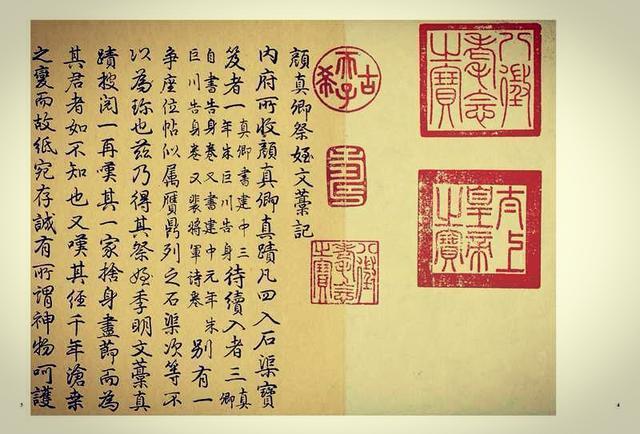 八徵耄念之寶
太上皇帝之寶
古稀天子
壽
八徵耄念之寶
顏真卿祭姪文藁記
內府所收顏真卿真蹟凡四入石渠寶
笈者一真卿書建中三年朱巨川告身待續入者三真卿
自書告身卷又書建中元年朱巨川告身卷又裴將軍詩卷別有一
爭座位帖似属贗鼎列之石渠次等不
以為珎也茲乃得其祭姪季明文藁真
蹟披閱一再嘆其一家捨身盡節而為
其君者如不知也又嘆其經千年滄桒
之變而故紙宛存誠有所謂神物呵護
4
5